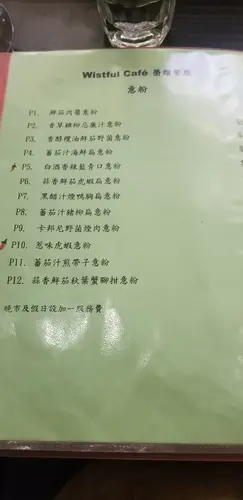 Wistful Café
意粉
P1. 鮮茄肉醬意粉
P2. 香草雜粉忌廉汁意粉
P3. 香醋欖油鮮茄野菌意粉
P4. 蕃茄汁海鮮扁意粉
P5. 白酒香辣藍青口意粉
P6. 蒜香鮮茄虎蝦扁意粉
P7. 黑醋汁煙鴨胸扁意粉
P8. 蕃茄汁豬柳扁意粉
P9. 卡邦尼野菌煙肉意粉
P10. 惹味虎蝦意粉
P11. 蕃茄汁煎帶子意粉
P12. 蒜香鮮茄秋葉蟹腳柑意粉
晚市及假日設加一服務費